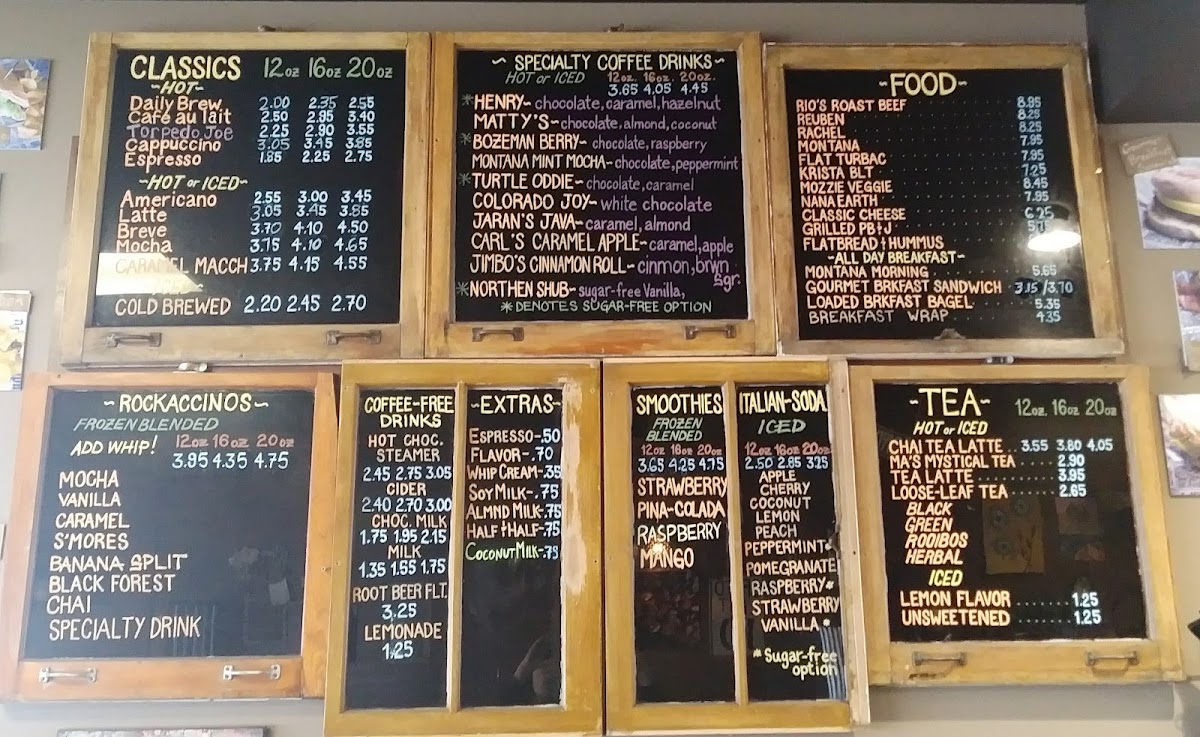 CLASSICS 12oz 16oz 20oz
~HOT~
Daily Brew 2.00 2.35 2.55
Café au lait 2.50 2.95 3.40
Torpedo Joe 2.25 2.90 3.55
Cappuccino 3.05 3.45 3.85
Espresso 1.85 2.25 2.75
~HOT or ICED~
Americano 2.55 3.00 3.45
Latte 3.05 3.45 3.85
Breve 3.70 4.10 4.50
Mocha 3.75 4.10 4.65
CARAMEL MACCH 3.75 4.15 4.55
COLD BREWED 2.20 2.45 2.70
~ SPECIALTY COFFEE DRINKS ~
HOT or ICED 12oz. 16oz. 20oz.
3.65 4.05 4.45
*HENRY- chocolate, caramel, hazelnut
MATTY'S- chocolate, almond, coconut
*BOZEMAN BERRY- chocolate, raspberry
MONTANA MINT MOCHA- chocolate, peppermint
*TURTLE ODDIE- chocolate, caramel
COLORADO JOY- white chocolate
JARAN'S JAVA- caramel, almond
CARL'S CARAMEL APPLE- caramel, apple
JIMBO'S CINNAMON ROLL- cinmon, brwn sgr.
*NORTHEN SHUB- sugar-free Vanilla,
*DENOTES SUGAR-FREE OPTION
~FOOD~
RIO'S ROAST BEEF 8.95
REUBEN 8.25
RACHEL 8.25
MONTANA 7.95
FLAT TURBAC 7.95
KRISTA BLT 7.25
MOZZIE VEGGIE 8.45
NANA EARTH 7.85
CLASSIC CHEESE 6.25
GRILLED PB+J
FLATBREAD + HUMMUS
~ALL DAY BREAKFAST~
MONTANA MORNING 5.65
GOURMET BRKFAST SANDWICH 3.15/3.70
LOADED BRKFAST BAGEL 5.35
BREAKFAST WRAP 4.35
~ROCKACCINOS~
FROZEN BLENDED
ADD WHIP! 12oz 16oz 20oz
3.95 4.35 4.75
MOCHA
VANILLA
CARAMEL
S'MORES
BANANA SPLIT
BLACK FOREST
CHAI
SPECIALTY DRINK
COFFEE-FREE
DRINKS
HOT CHOC.
STEAMER
2.45 2.75 3.05
CIDER
2.40 2.70 3.00
CHOC. MILK
1.75 1.95 2.15
MILK
1.35 1.55 1.75
ROOT BEER FLT.
3.25
LEMONADE
1.25
~EXTRAS~
ESPRESSO-.50
FLAVOR-.70
WHIP CREAM-.35
SOY MILK-.75
ALMND MILK-.75
HALF + HALF-.75
COCONUT MILK-.75
SMOOTHIES
FROZEN
BLENDED
12oz 16oz 20oz
3.65 4.25 4.75
STRAWBERRY
PINA-COLADA
RASPBERRY
MANGO
ITALIAN-SODA
ICED
12oz 16oz 20oz
2.50 2.85 3.25
APPLE
CHERRY
COCONUT
LEMON
PEACH
PEPPERMINT*
POMEGRANATE
RASPBERRY*
STRAWBERRY
VANILLA*
*Sugar-free
option
~TEA~ 12oz. 16oz 20oz
HOT or ICED
CHAI TEA LATTE 3.55 3.80 4.05
MA'S MYSTICAL TEA 2.90
TEA LATTE 3.95
LOOSE-LEAF TEA 2.65
BLACK
GREEN
ROOIBOS
HERBAL
ICED
LEMON FLAVOR 1.25
UNSWEETENED 1.25